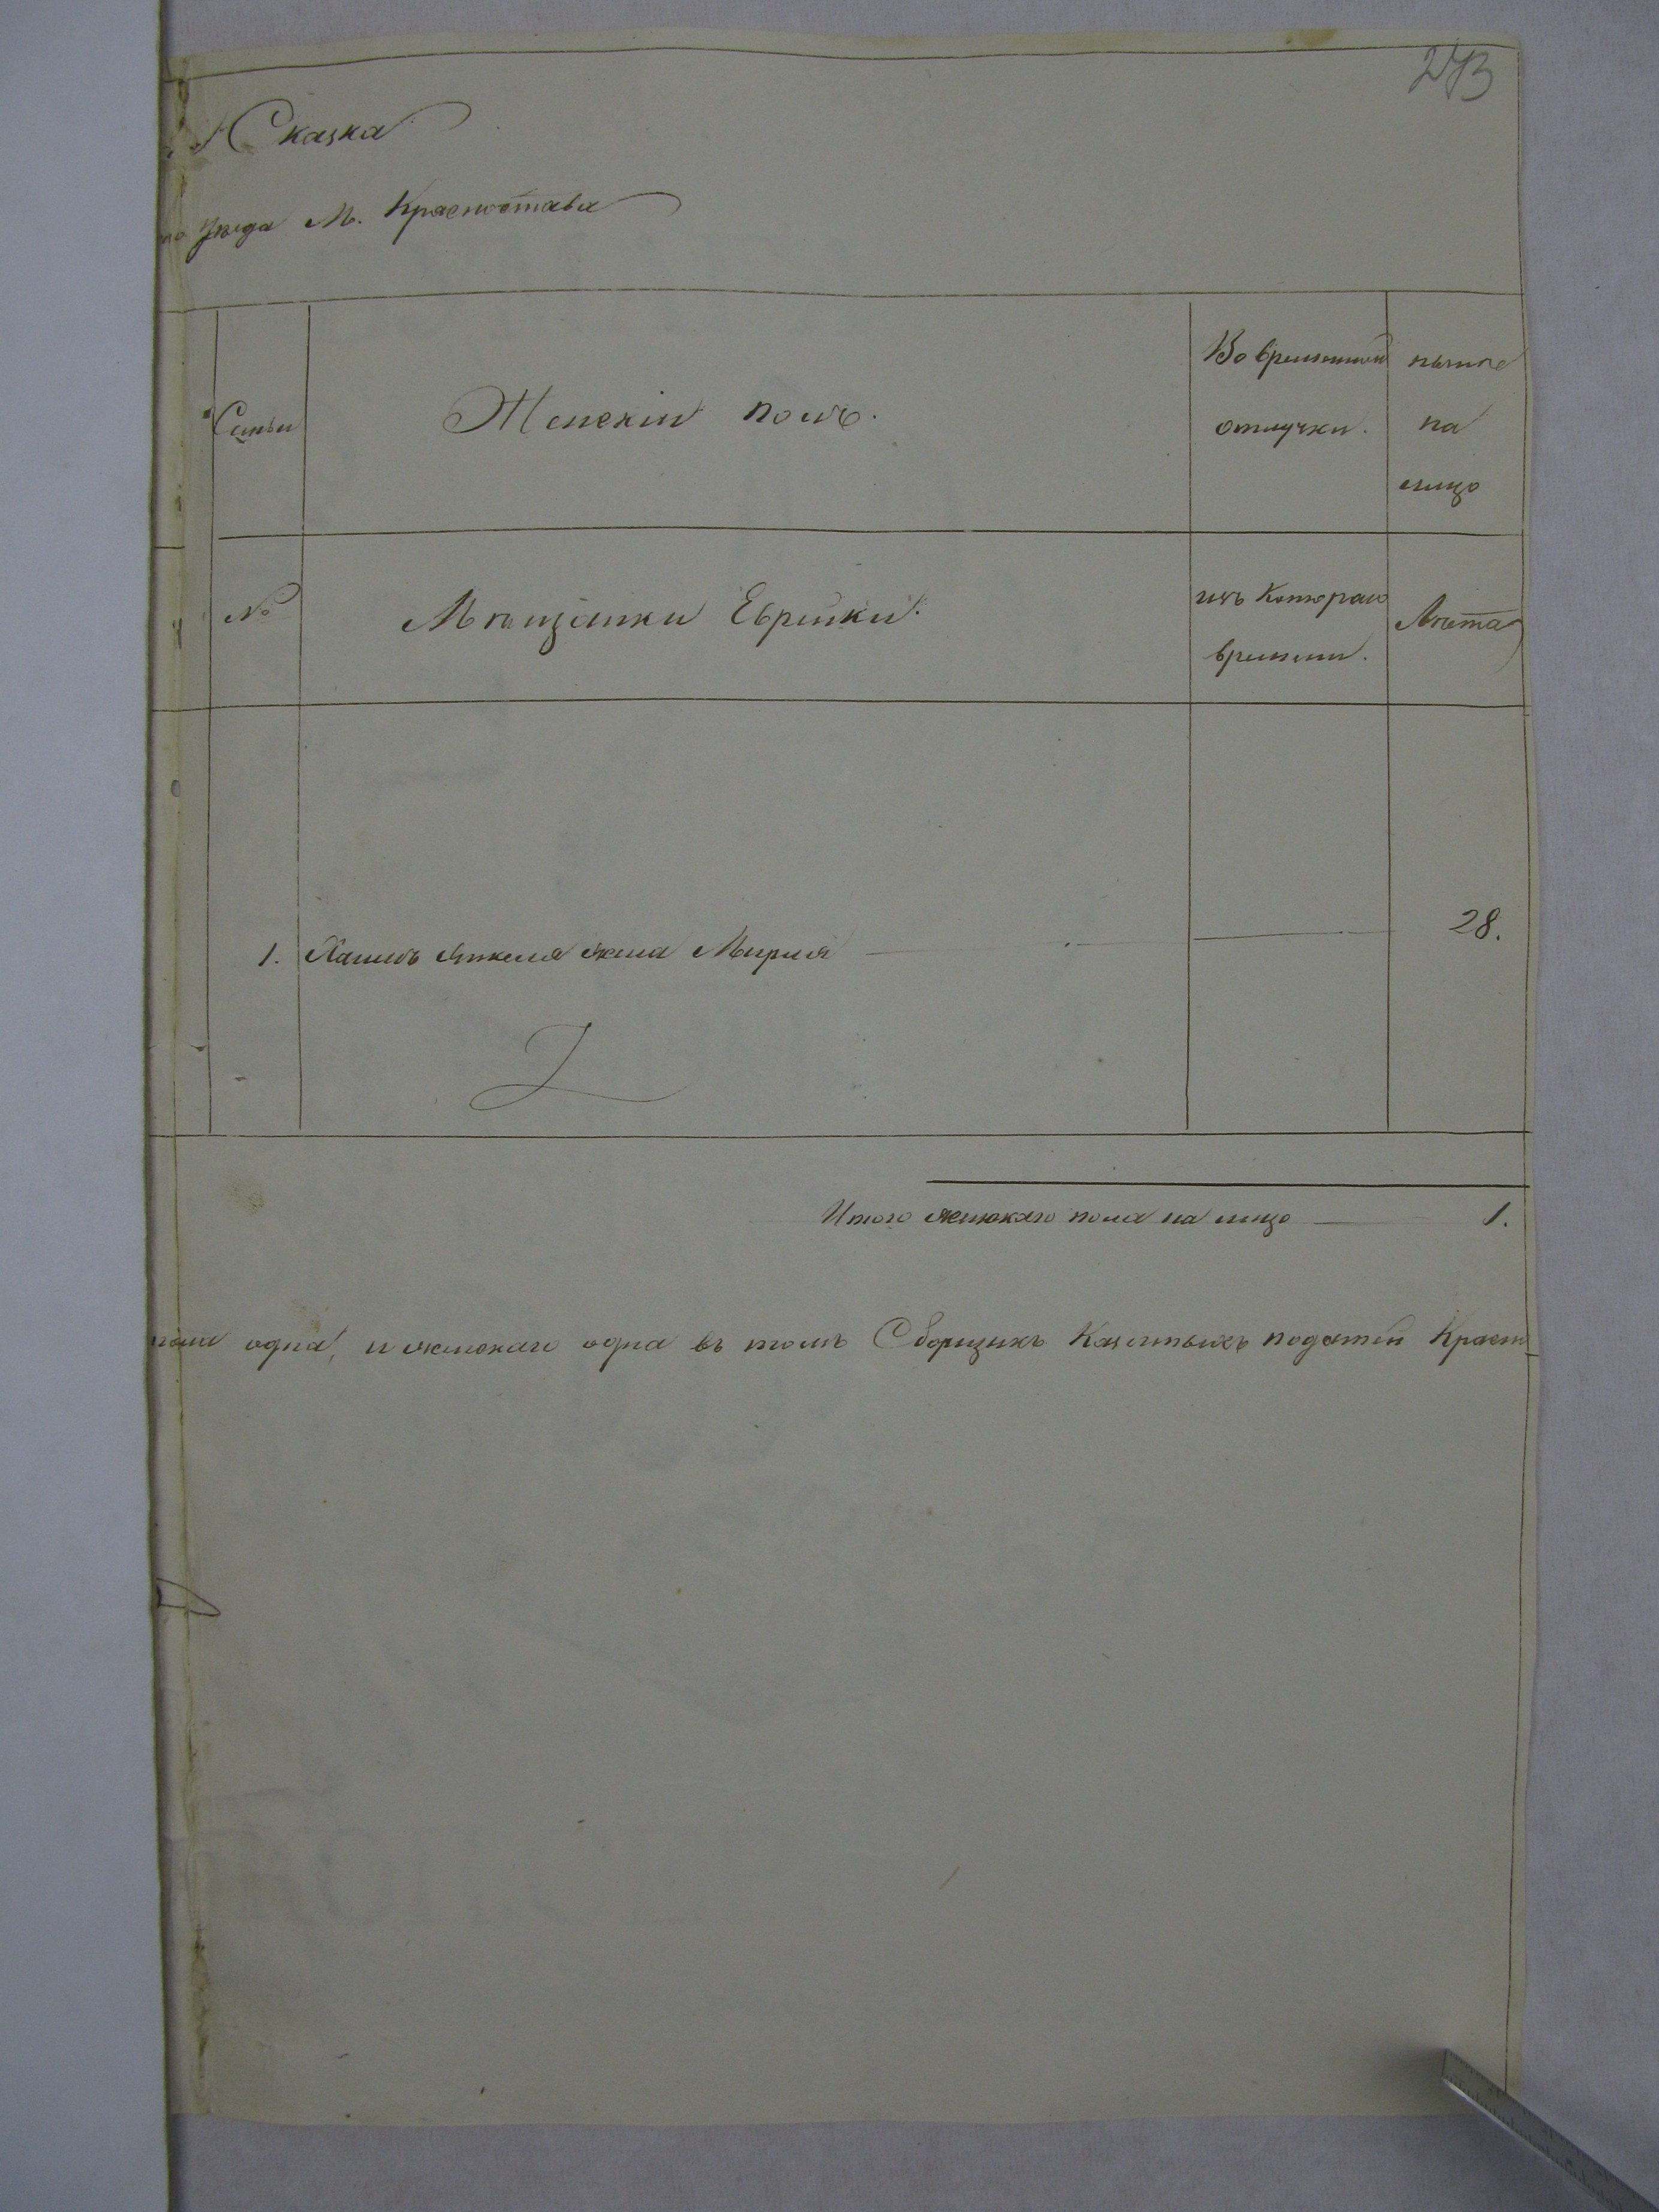 273
Сказка
уѣзда М. Красностава
Семьи
Женскій полъ.
Во временной отлучки.
нынѣ на лицо
№
Мѣщанки Еврейки.
изъ котораго времени.
Лѣта
1. Янкеля жена Мирля
28.
Итого женскаго пола на лицо 1.
пола одна, и женскаго одна въ томъ Сборщикъ Казенныхъ податей Красно